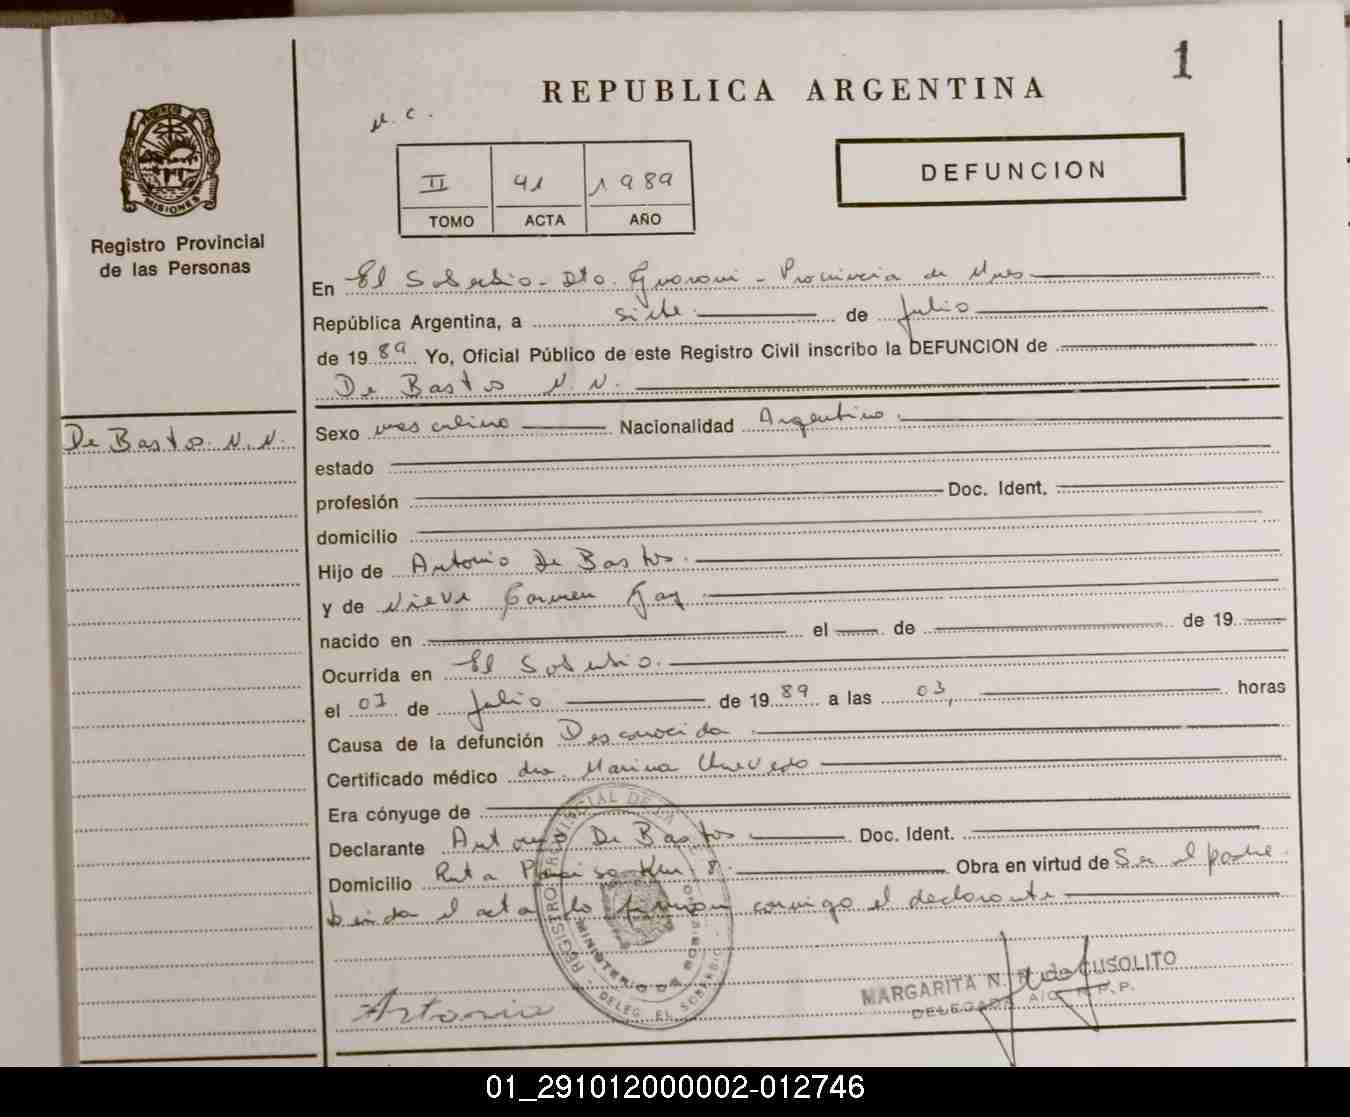 1
REPUBLICA ARGENTINA
N. C.
II 41 1989
TOMO ACTA AÑO
DEFUNCION
MISIONES
Registro Provincial
de las Personas
De Bastos N. N.
En El Soberbio - Dto. Guarani - Provincia de Mnes
República Argentina, a siete de Julio
de 19 89 Yo, Oficial Público de este Registro Civil inscribo la DEFUNCION de
De Bastos N. N.
Sexo masculino Nacionalidad Argentino.
estado
profesión Doc. Ident.
domicilio
Hijo de Antonio De Bastos.
y de Nieve Carmen
nacido en el de de 19
Ocurrida en El Soberbio.
el 07 de Julio de 19 89 a las 03, horas
Causa de la defunción Desconocida
Certificado médico dra. Marina
Era cónyuge de
Declarante Antonio De Bastos Doc. Ident.
Domicilio Ruta Km 8. Obra en virtud de Ser el padre.
el acta firman conmigo el declarante
REGISTRO PROVINCIAL DE LA
MINISTERIO DE GOBIERNO
DELEG. EL SOBERBIO
Antonio
MARGARITA N. de CUSOLITO
DELEGADA A/C R.P.P.
01_291012000002-012746